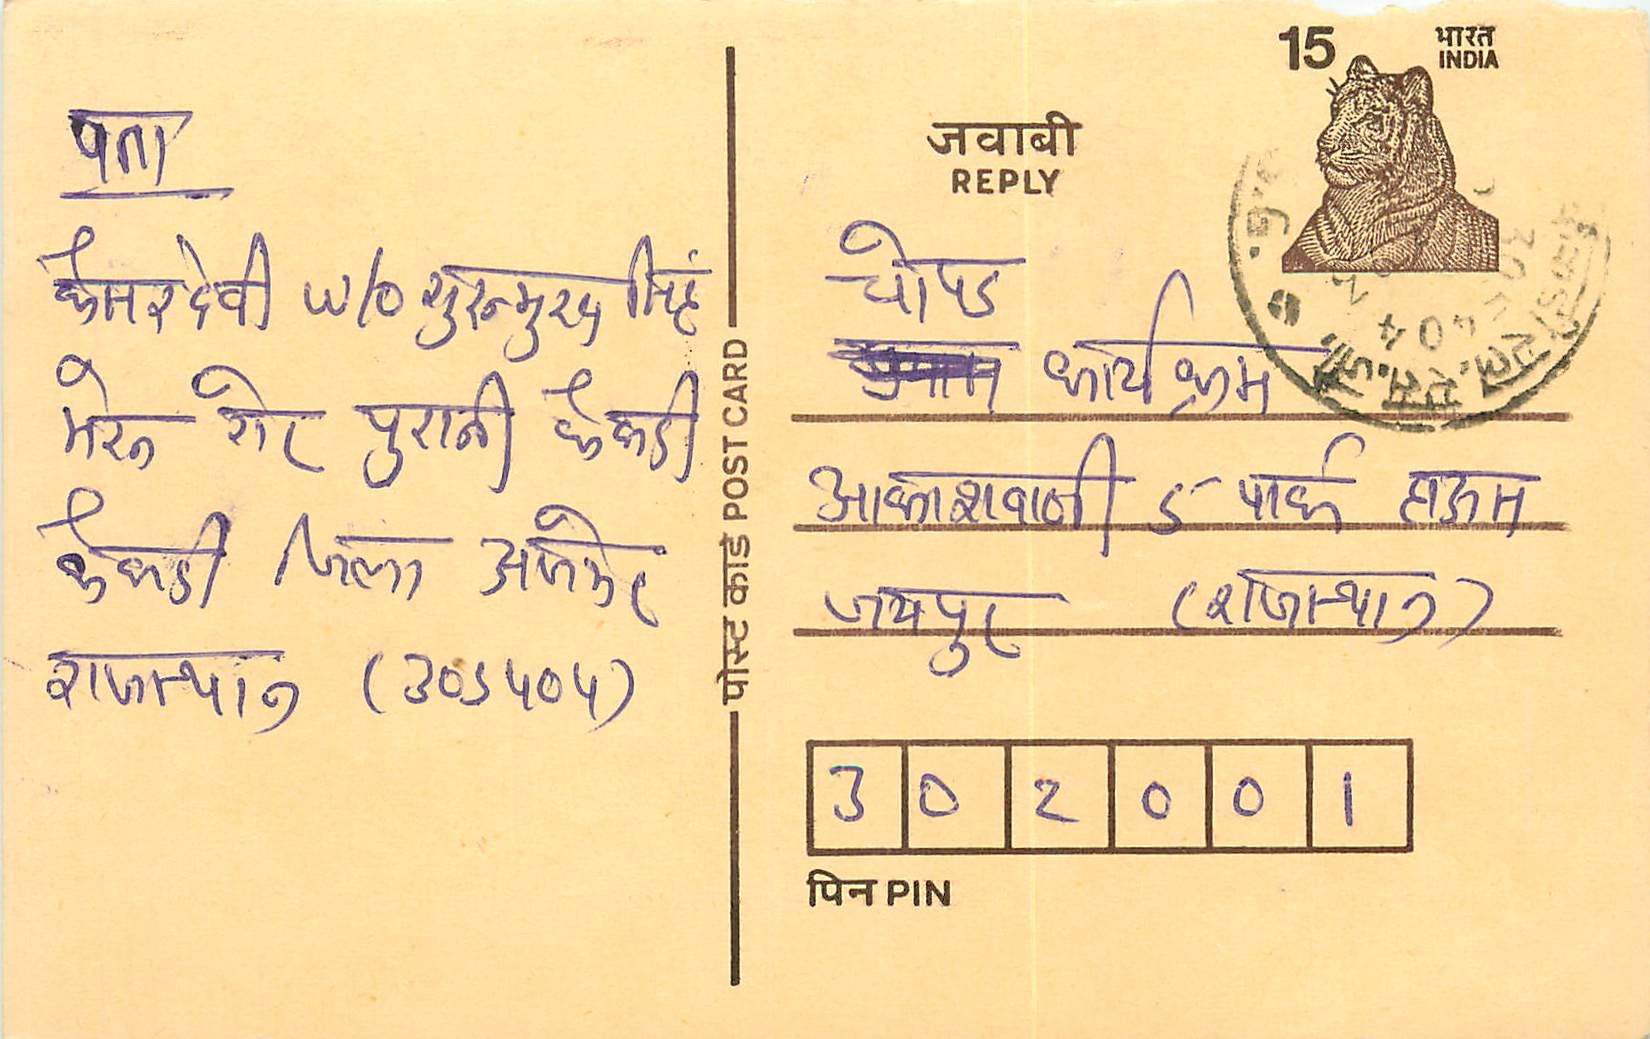 पता
केसर देवी W/O गुरुमुख सिंह
मेरु गेट पुरानी केकडी
केकडी जिला अजमेर
राजस्थान (305404)
पोस्ट कार्ड POST CARD
15 भारत
INDIA
जवाबी
REPLY
चोपड
कार्यक्रम
आकाशवाणी 5 पार्क हाऊस
जयपुर (राजस्थान)
302001
पिन PIN